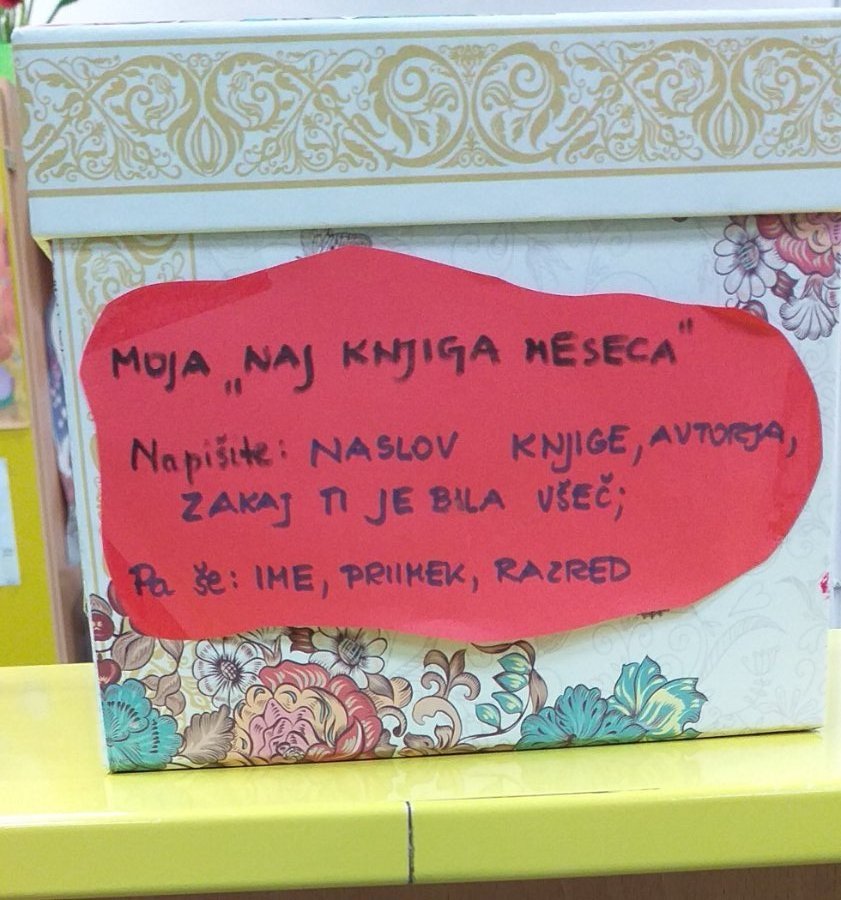 MOJA „NAJ KNJIGA MESECA"
Napišite: NASLOV KNJIGE, AVTORJA,
ZAKAJ TI JE BILA VŠEČ;
Pa še: IME, PRIIMEK, RAZRED